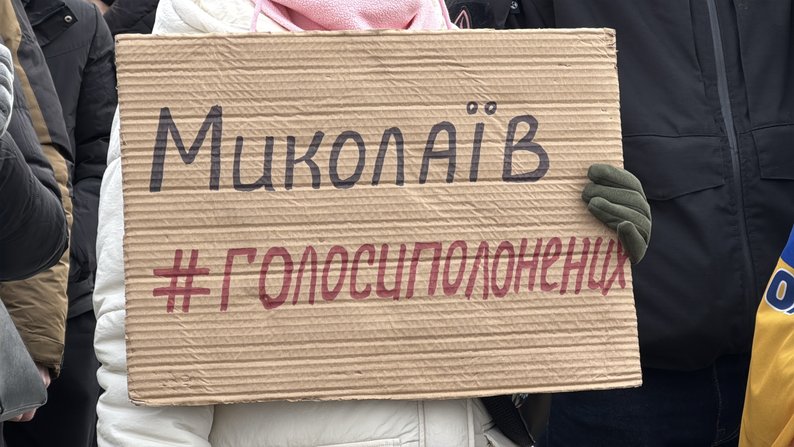 Миколаїв
#голосиполонених